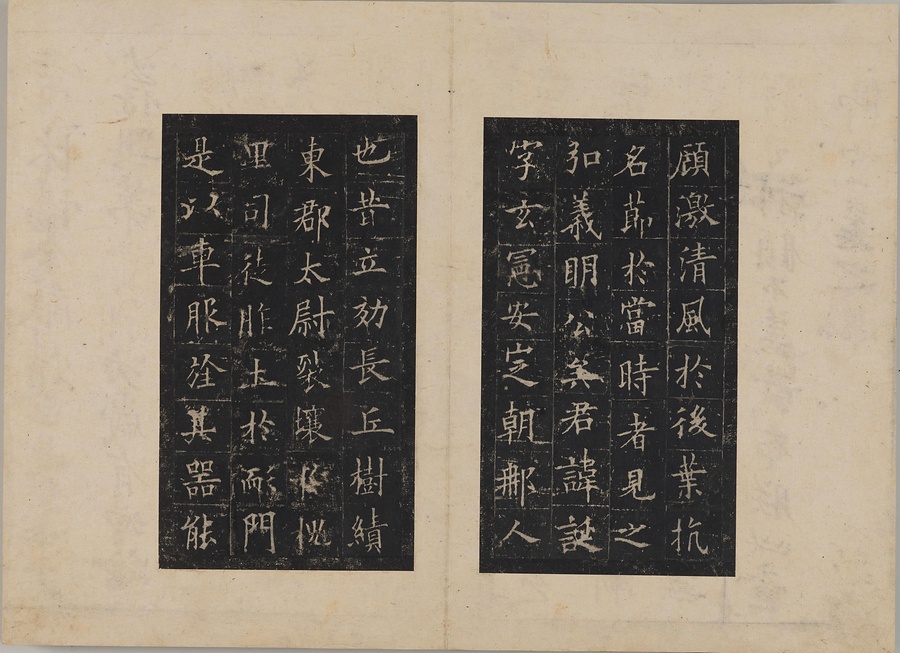 顧激清風於後葉抗
名莭於當時者見之
弘義明公矣君諱誕
字玄憲安定朝那人
也昔立効長丘樹績
東郡太尉裂壤槐
里司徒胙土於耏門
是以車服詮其器能